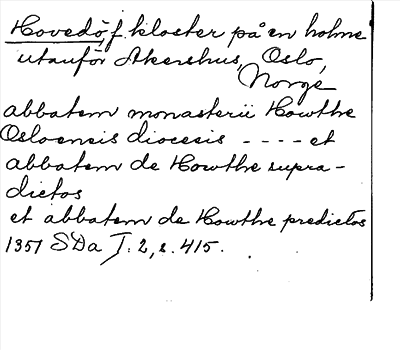 Hovedö, f. kloster på en holme
utanför Akershus, Oslo,
Norge
abbatem monasterii Howthe
Osloensis diocesis - - - - et
abbatem de Howthe supra-
dictos
et abbatem de Howthe predictos
1351 SDa I: 2, s. 415.